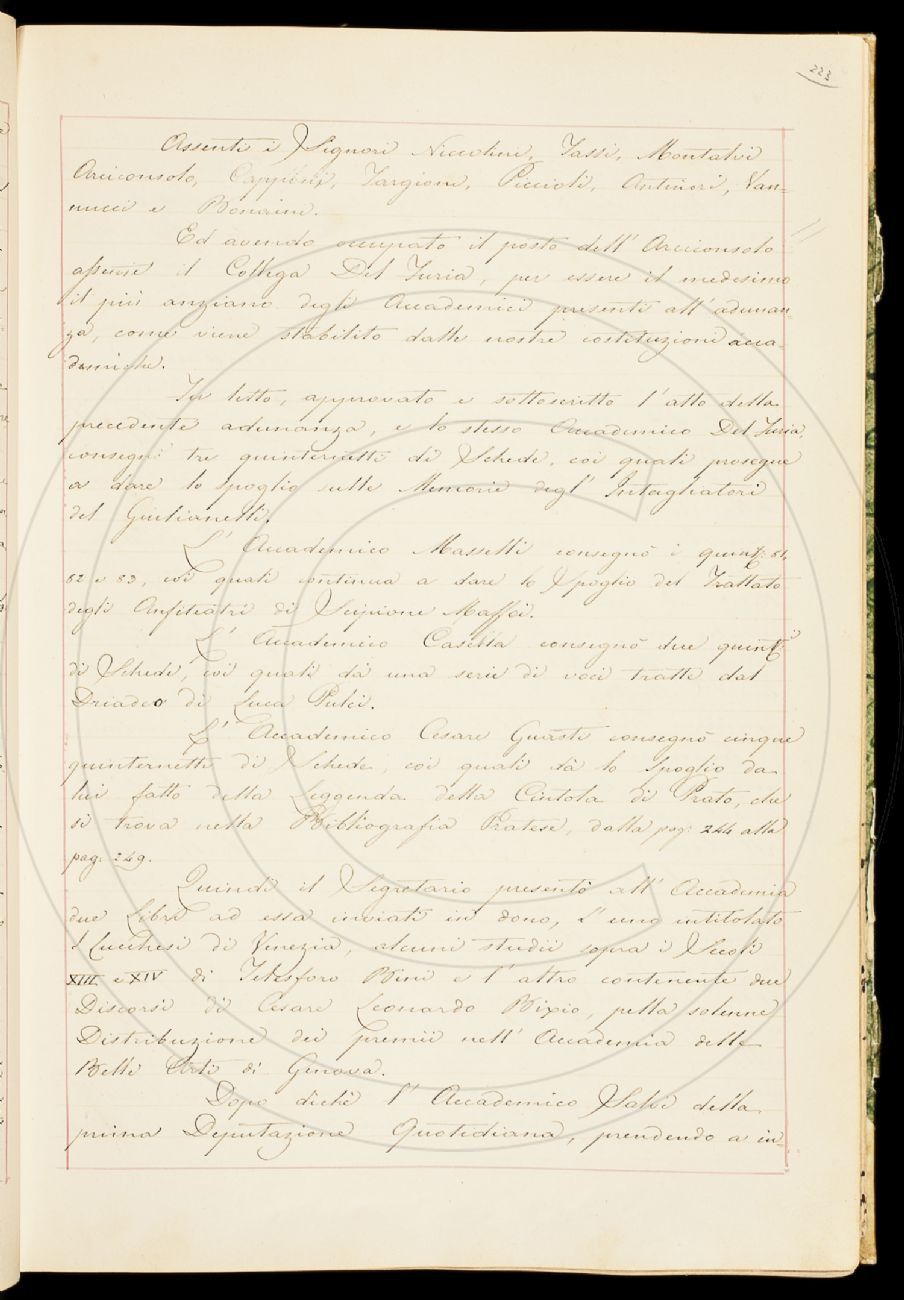 223
Assenti i Signori Niccolini, Tassi, Montalvi
Arciconsolo, Capponi, Targioni, Piccioli, Antinori, Van=
nucci e Bonaini.
Ed avendo occupato il posto dell' Arciconsolo
assente il Collega Del Furia, per essere il medesimo
il più anziano degli Accademici presenti all' adunan=
za, come viene stabilito dalle nostre costituzioni acca=
demiche.
Fu letto, approvato e sottoscritto l'atto della
precedente adunanza, e lo stesso Accademico Del Furia,
consegnò tre quinternetti di Schede, coi quali prosegue
a dare lo spoglio sulle Memorie degl' Intagliatori
del Giulianelli.
L' Accademico Masselli consegnò i quint: 81,
82 e 83, coi quali continua a dare lo Spoglio del Trattato
degli Anfiteatri di Scipione Maffei.
L' Accademico Casella consegnò due quint:
di Schede, coi quali dà una serie di voci tratte dal
Driadeo di Luca Pulci.
L' Accademico Cesare Guasti consegnò cinque
quinternetti di Schede, coi quali dà lo Spoglio da
lui fatto della Leggenda della Cintola di Prato, che
si trova nella Bibliografia Pratese, dalla pag: 244 alla
pag: 249.
Quindi il Segretario presentò all' Accademia
due Libri ad essa inviati in dono, l'uno intitolato
I Lucchesi di Venezia, alcuni studii sopra i Secoli
XIII e XIV di Telesforo Bini e l'altro contenente due
Discorsi di Cesare Leonardo Bixio, pella solenne
Distribuzione dei Premii nell' Accademia delle
Belle Arti di Genova.
Dopo dichè l' Accademico Salvi della
prima Deputazione Quotidiana, prendendo a in=